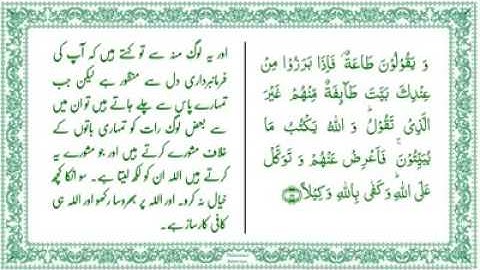 وَ يَقُوۡلُوۡنَ طَاعَةٌ ۫ فَاِذَا بَرَزُوۡا مِنۡ
عِنۡدِكَ بَيَّتَ طَآئِفَةٌ مِّنۡهُمۡ غَيۡرَ
الَّذِىۡ تَقُوۡلُ ؕ وَاللّٰهُ يَكۡتُبُ مَا
يُبَيِّتُوۡنَ ۚ فَاَعۡرِضۡ عَنۡهُمۡ وَ تَوَكَّلۡ
عَلَى اللّٰهِ ؕ وَكَفٰى بِاللّٰهِ وَكِيۡلًا
اور یہ لوگ منہ سے تو کہتے ہیں کہ آپ کی
فرمانبرداری دل سے منظور ہے لیکن جب
تمہارے پاس سے چلے جاتے ہیں تو ان میں
سے بعض لوگ رات کو تمہاری باتوں کے
خلاف مشورے کرتے ہیں اور جو مشورے یہ
کرتے ہیں اللہ ان کو لکھ لیتا ہے۔ سو انکا کچھ
خیال نہ کرو۔ اور اللہ پر بھروسا رکھو اور اللہ ہی
کافی کارساز ہے۔